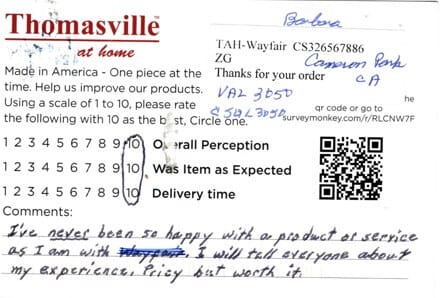 Thomasville
at home
Barbara
TAH-Wayfair CS326567886
ZG
Cameron Park
Thanks for your order
CA
VAL 3050
Made in America - One piece at the
time. Help us improve our products.
Using a scale of 1 to 10, please rate
the following with 10 as the b st, Circle one.
he
qr code or go to
surveymonkey.com/r/RLCNW7F
1 2 3 4 5 6 7 8 9 10 Overall Perception
1 2 3 4 5 6 7 8 9 10 Was Item as Expected
1 2 3 4 5 6 7 8 9 10 Delivery time
Comments:
I've never been so happy with a product or service
as I am with Wayfair. I will tell everyone about
my experience. Pricy but worth it.